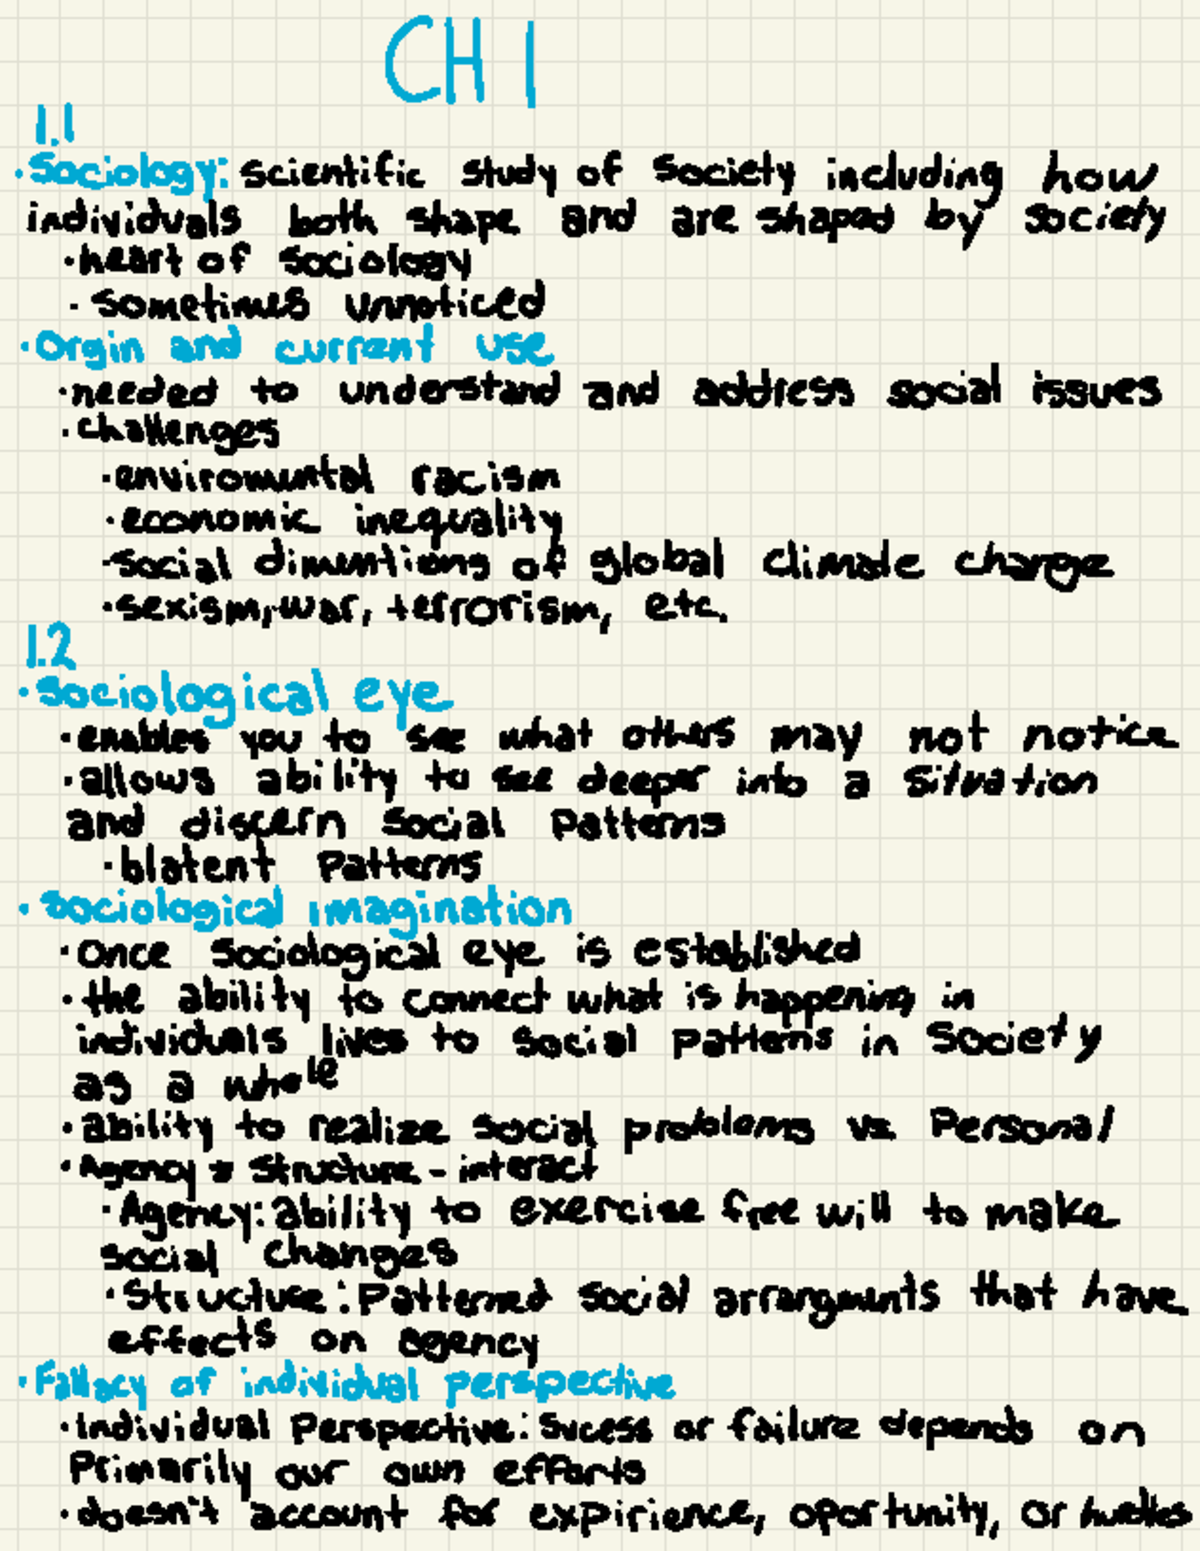 CH 1
1.1
·Sociology: scientific study of society including how
individuals both shape and are shaped by society
·heart of sociology
·sometimes unnoticed
·Orgin and current use
·needed to understand and address social issues
·challenges
·enviromental racism
·economic inequality
·social dimentions of global climate change
·sexism, war, terrorism, etc.
1.2
·Sociological eye
·enables you to see what others may not notice
·allows ability to see deeper into a situation
and discern social patterns
·blatent patterns
·Sociological imagination
·once sociological eye is established
·the ability to connect what is happening in
individuals lives to social patterns in society
as a whole
·ability to realize social problems vs. Personal
·Agency & Structure - interact
·Agency: ability to exercise free will to make
social changes
·Structure: Patterned social arrangments that have
effects on agency
·Fallacy of individual perspective
·Individual Perspective: Sucess or failure depends on
Primarily our own efforts
·doesn't account for expirience, oportunity, or hurdles